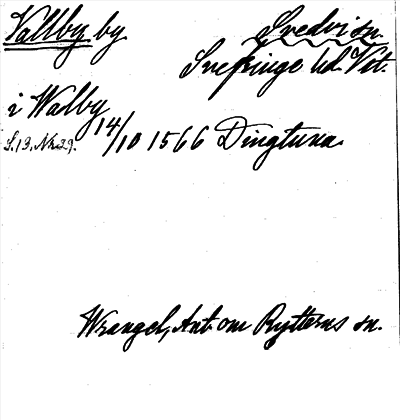 Vallby by Svedvi sn.
Snefringe hd. Vstm.
i Walby
14/10 1566 Dingtuna.
S. 13. Nr 29.
Wrangel, Ant. om Rytterns sn.